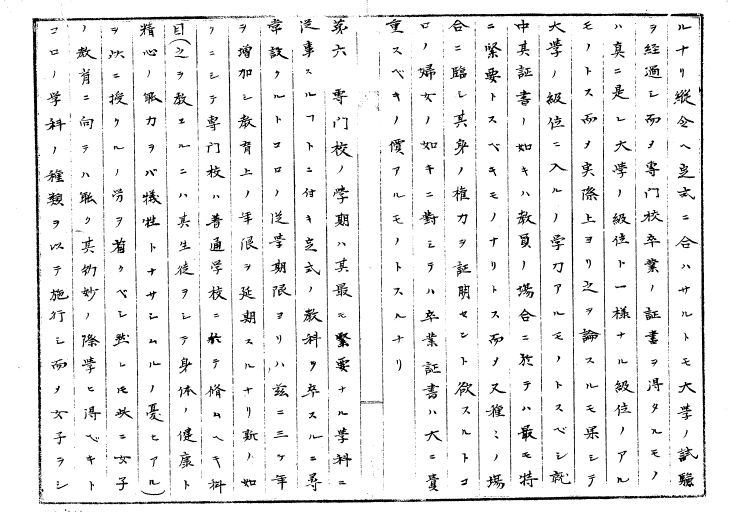 ルナリ縦令ヘ定式ニ合ハサルトモ大学ノ試験
ヲ経過シ而メ専門校卒業ノ証書ヲ得タルモノ
ハ真ニ是レ大学ノ級位ト一様ナル級位ノアル
モノトス而メ実際上ヨリ之ヲ論スルモ果シテ
大学ノ級位ニ入ルノ学力アルモノトスベシ就
中其証書ノ如キハ教員ノ場合ニ於テハ最モ特
ニ緊要トスベキモノナリトス而メ又種々ノ場
合ニ臨シ其身ノ権力ヲ証明セント欲スルトコ
ロノ婦女ノ如キニ対シテハ卒業証書ハ大ニ貴
重スベキノ價アルモノトスルナリ
第六 専門校ノ学期ハ其最モ緊要ナル学科ニ
従事スルコトニ付キ定式ノ教科ヲ卒スルニ尋
常設クルトコロノ従学期限ヨリハ茲ニ三ケ年
ヲ増加シ教育上ノ年限ヲ延期スルナリ斯ノ如
クニシテ専門校ハ普通学校ニ於テ脩ムベキ科
目(之ヲ教エルニハ其生徒ヲシテ身体ノ健康ト
精心ノ能力ヲバ犠牲トナサシムルノ憂ヒアル)
ヲ以ニ授クルノ労ヲ省クベシ然レモ此ニ女子
ノ教育ニ向テハ能ク其術妙ノ際学ヒ得ベキト
コロノ学科ノ種類ヲ以テ施行シ而メ女子ヲシ